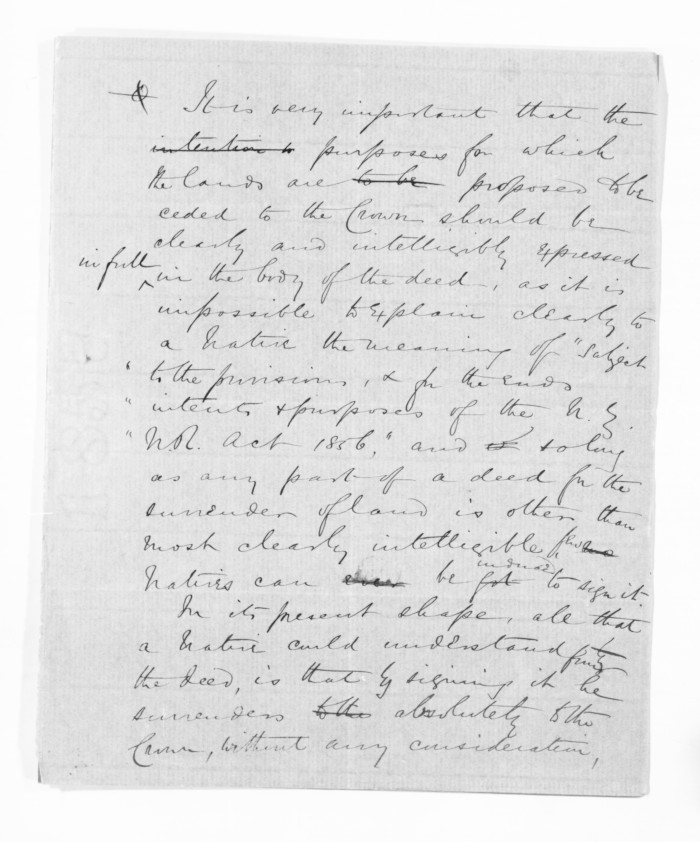 It is very important that the
intention to purposes for which
the lands are to be proposed to be
ceded to the Crown should be
clearly and intelligibly expressed
in full in the body of the deed, as it is
impossible to explain clearly to
a Native the meaning of "Subject
"to the provisions, & for the ends
"intents & purposes of the N. Z.
"N. R. Act 1856," and so long
as any part of a deed for the
surrender of land is other than
most clearly intelligible few
Natives can ever be got induced to sign it.
In its present shape, all that
a Native could understand from
the deed, is that by signing it he
surrenders to the absolutely to the
Crown, without any consideration,